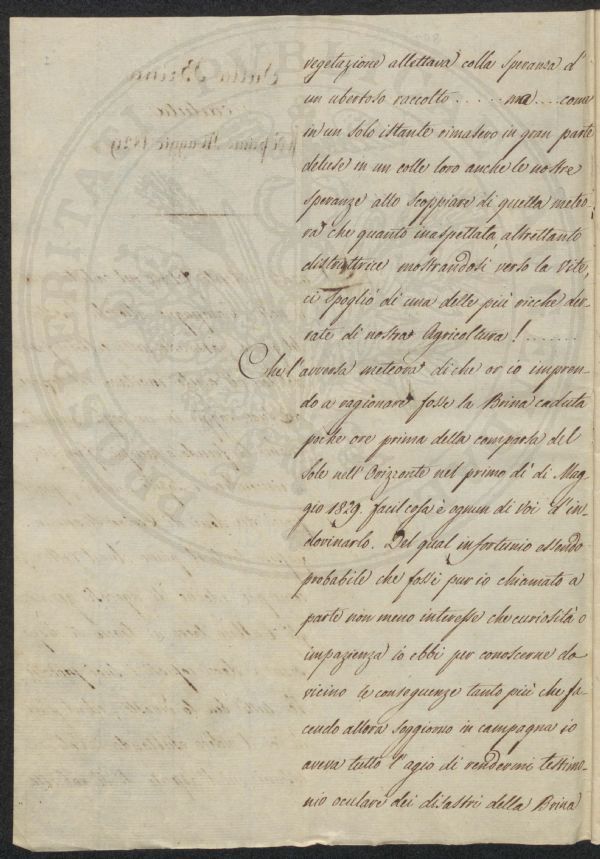 vegetazione allettava colla speranza d'
un ubertoso raccolto ...... ma .... come
in un solo istante rimasero in gran parte
deluse in un colle loro anche le nostre
speranze allo scoppiare di quella meteo
ra che quanto inaspettata, altrettanto
distruttrice mostrandosi verso la Vite,
ci spogliò di una delle più ricche der
rate di nostra Agricoltura! .......
Che l'avversa meteora di che or io impren
do a ragionare fosse la Brina caduta
poche ore prima della comparsa del
Sole nell'Orizzonte nel primo dì di Mag
gio 1829. facil cosa è ognun di Voi l'in
dovinarlo. Del qual infortunio essendo
probabile che fossi pur io chiamato a
parte non meno interesse che curiosità o
impazienza io ebbi per conoscerne da
vicino le conseguenze tanto più che fa
cendo allora soggiorno in campagna io
aveva tutto l'agio di rendermi testimo
nio oculare dei disastri della Brina